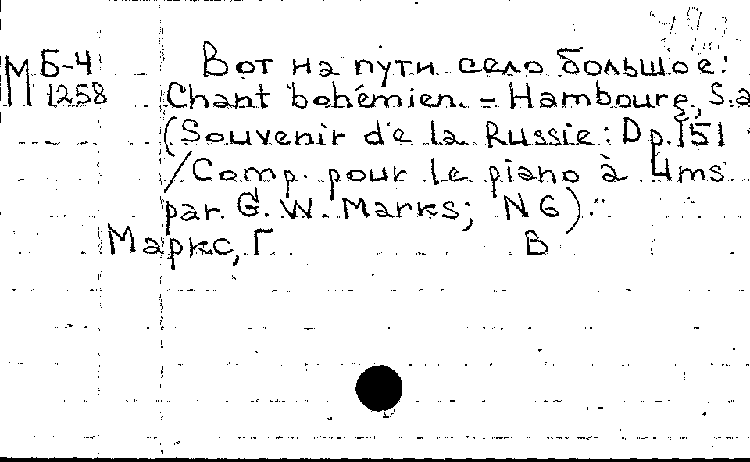 М Б-4 Вот на пути село большое:
1258 Chant bohémien. - Hambourg, S.a
(Souvenir de la Russie: Op. 151
/Comp. pour le piano à 4ms
par G. W. Marks; N 6).
Маркс, Г В